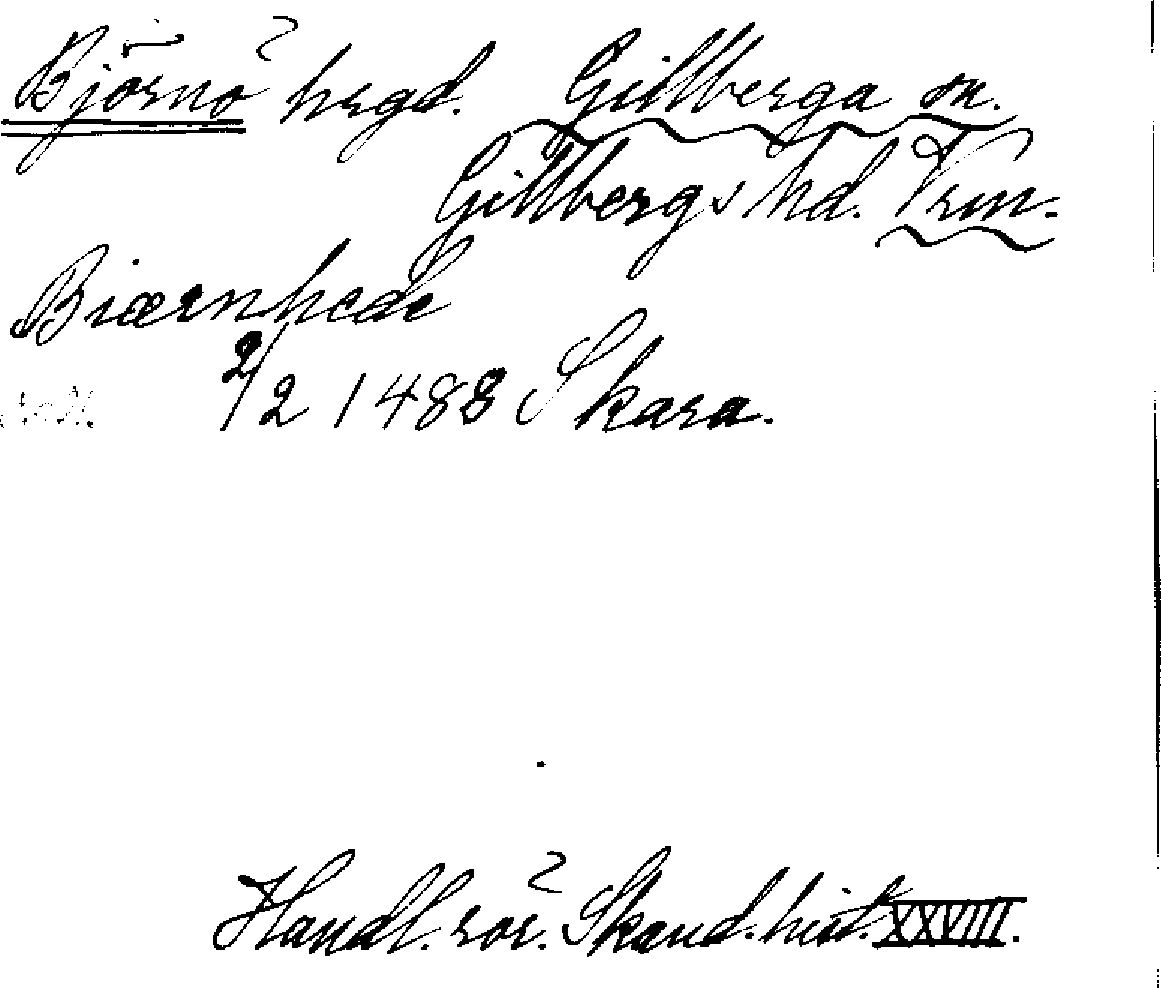 Björnö hrgd. Gillberga sn.
Gillbergs hd. Vrm.
Biærnhede
2/2 1488 Skara.
Handl. rör. Skand. hist. XXVIII.